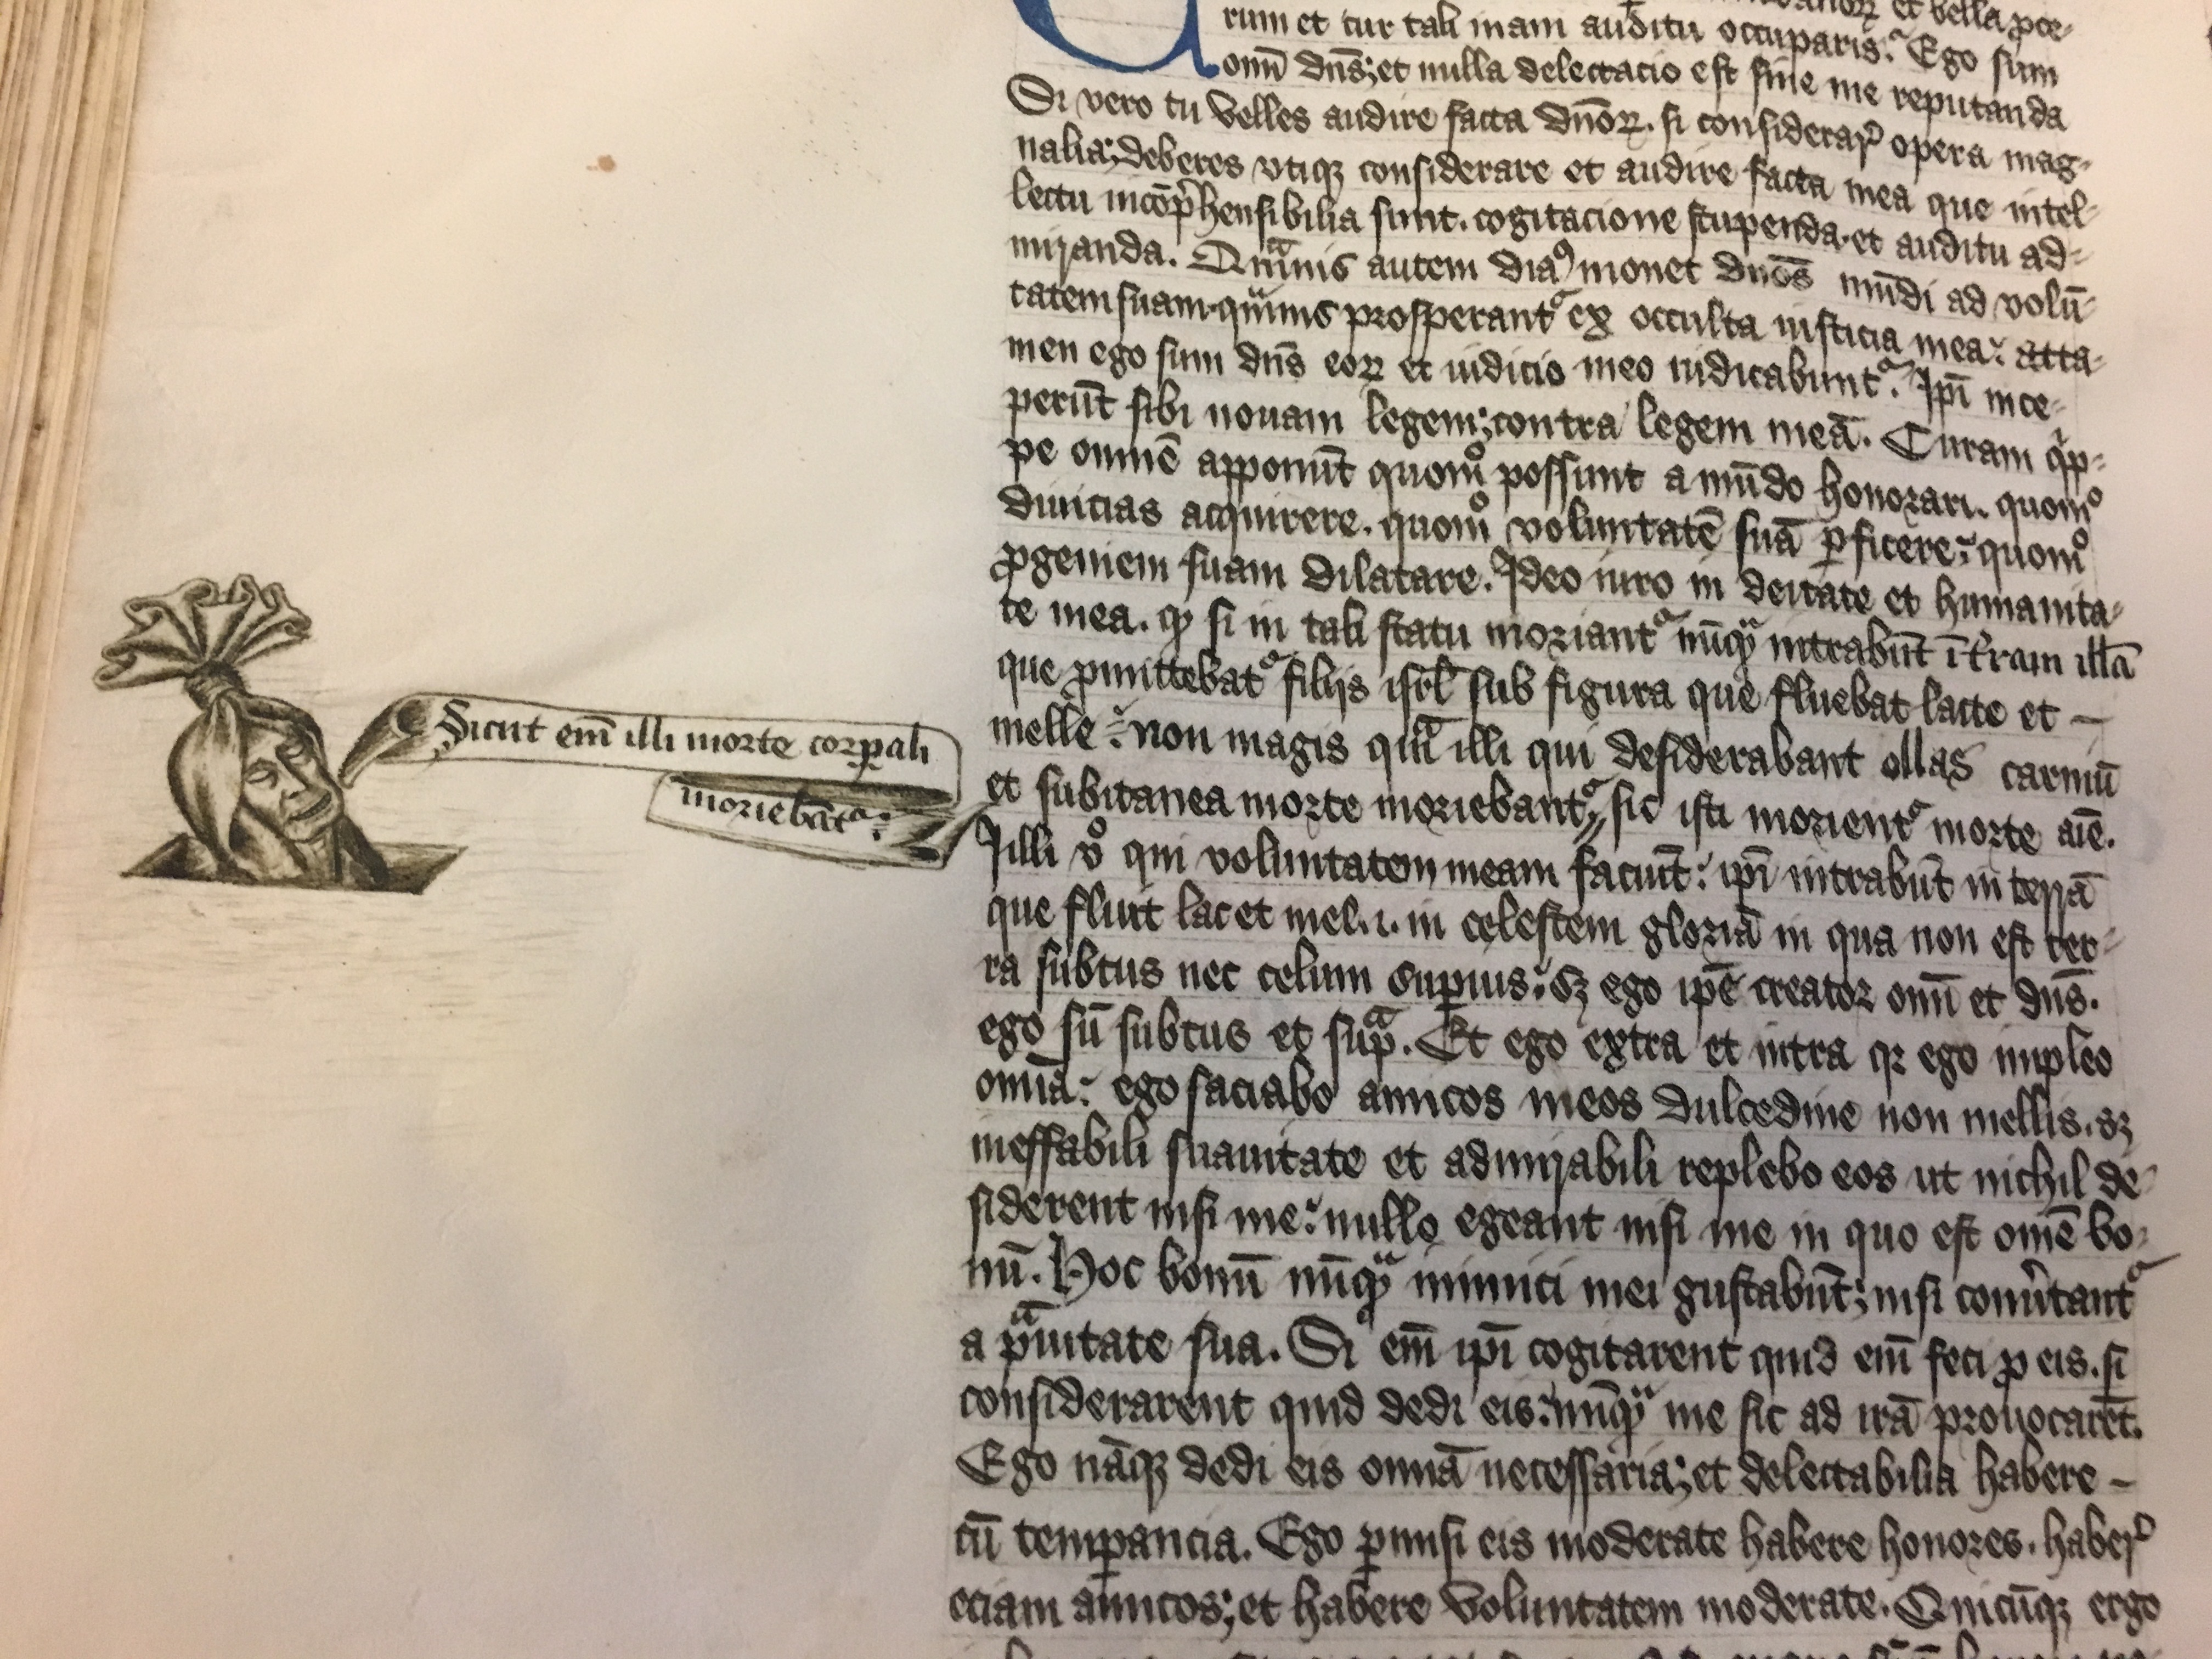 et bella pce-
rum et cur tali inam auditu occuparis. Ego sum
omī dn̄s; et nulla delectacio est sine me reputanda
Si vero tu velles audire facta dn̄oꝝ. si considerar̉ opera mag-
nalia; deberes vtiqꝫ considerare et audire facta mea que intel-
lectu incōp̄hensibilia sunt. cogitacione stupenda. et auditu ad-
miranda. Quāuis autem diaꝯ monet dn̄os mūdi ad volū-
tatem suam. quāuis prosperant᷑ ex occulta iusticia mea: atta-
men ego sum dn̄s eoꝝ et iudicio meo iudicabunt᷑. Ip̄i ince-
perūt sibi nouam legem; contra legem meā. Curam q̄p-
pe omnē apponūt quomᵒ possunt a mūdo honorari. quomᵒ
diuicias acquirere. quomᵒ voluntatē suā ꝑficere; quomᵒ
ꝓgeniem suam dilatare. Ideo iuro in deitate et humanita-
te mea. ꝙ si in tali statu moriant᷑ nūqᵃ intrabūt ī t̉ram illā
que ꝓmittebat᷑ filijs isrl̄ sub figura que fluebat lacte et –
melle: non magis qͣm illi qui desiderabant ollas carniū
Sicut em̄ illi morte corꝑali
moriebāt᷑:
et subitanea morte moriebant᷑,, sic isti morient᷑ morte aīe.
Illi vᵒ qui voluntatem meam faciūt: ip̄i intrabūt in terrā
que fluit lac et mel. i. in celestem gloriā in qua non est ter-
ra subtus nec celum suꝑius: sꝫ ego ip̄e creator om̄ et dn̄s.
ego sū subtus et supͣ. Et ego extra et intra qꝛ ego impleo
omīa: ego saciabo amicos meos dulcedine non mellis. sꝫ
ineffabili suauitate et admirabili replebo eos ut nichil de-
siderent nisi me: nullo egeant nisi me in quo est om̄e bo-
nū. Hoc bonū nūqᵃ inimici mei gustabūt; nisi conủtant᷑
a pͣuitate sua. Si em̄ ip̄i cogitarent quid em̄ feci ꝓ eis. si
considerarent quid dedi eis: nūqᵃ me sic ad irā prouocarēt.
Ego nāqꝫ dedi eis omīa necessaria; et delectabilia habere –
cū temꝑancia. Ego ꝑmisi eis moderate habere honores. haber̉
eciam amicos; et habere voluntatem moderate. Quicūqꝫ ergo